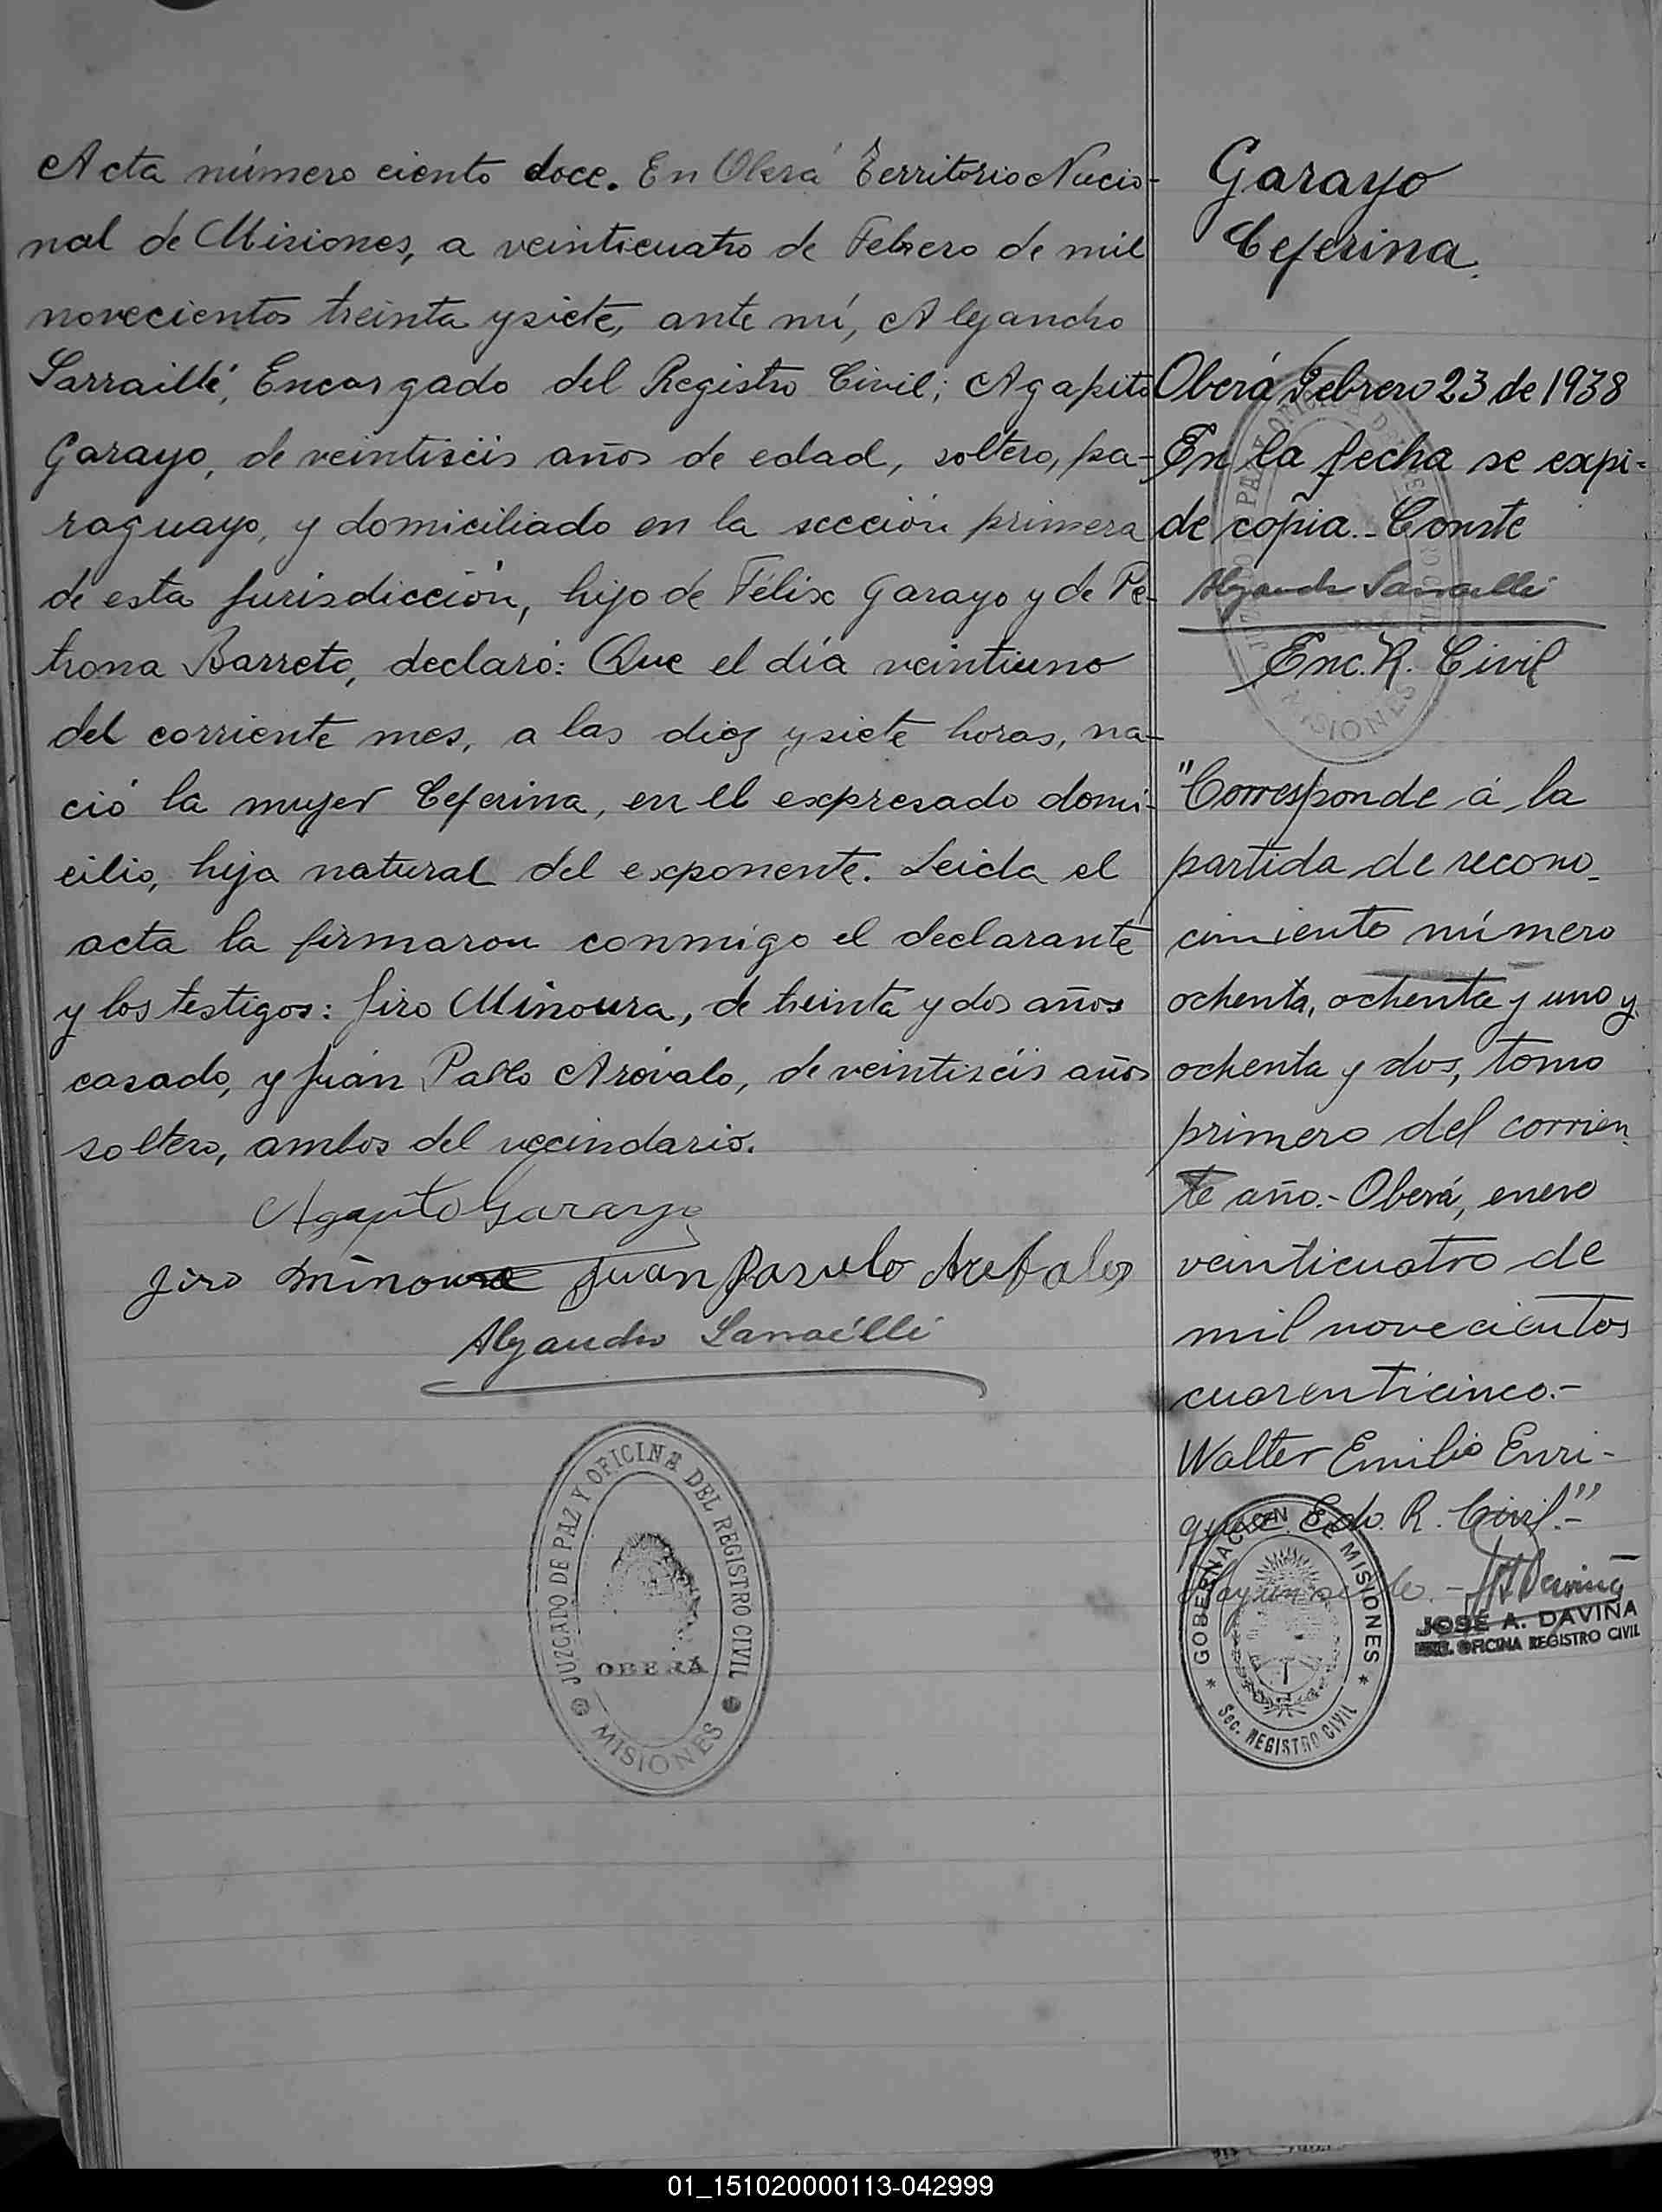 Acta número ciento doce. En Oberá Territorio Nacio-
nal de Misiones, a veinticuatro de Febrero de mil
novecientos treinta y siete, ante mí, Alejandro
Sarraillé, Encargado del Registro Civil; Agapito
Garayo, de veintiséis años de edad, soltero, pa-
raguayo, y domiciliado en la sección primera
de esta jurisdicción, hijo de Félix Garayo y de Pe-
trona Barreto, declaró: Que el día veintiuno
del corriente mes, a las diez y siete horas, na-
ció la mujer Ceferina, en el expresado domi-
cilio, hija natural del exponente. Leida el
acta la firmaron conmigo el declarante
y los testigos: Jiro Minoura, de treinta y dos años
casado, y Juán Pablo Arévalo, de veintiséis años
soltero, ambos del vecindario.
Agapito Garayo
Jiro Minoura Juan Arebalos
Alejandro Sarraillé
JUZGADO DE PAZ Y OFICINA DEL REGISTRO CIVIL
OBERÁ
MISIONES
Garayo
Ceferina.
Oberá Febrero 23 de 1938
En la fecha se expi-
de copia.- Conste
Alejandro Sarraillé
Enc. R. Civil
"Corresponde á la
partida de recono-
cimiento número
ochenta, ochenta y uno y
ochenta y dos, tomo
primero del corrien-
te año.- Oberá, enero
veinticuatro de
mil novecientos
cuarenticinco.-
Walter Emilio Enri-
que. Edo. R. Civil."-
Hay un sello.-
JOSÉ A. DAVIÑA
OFICINA REGISTRO CIVIL
GOBERNACION DE MISIONES
Sec. REGISTRO CIVIL
01_151020000113-042999